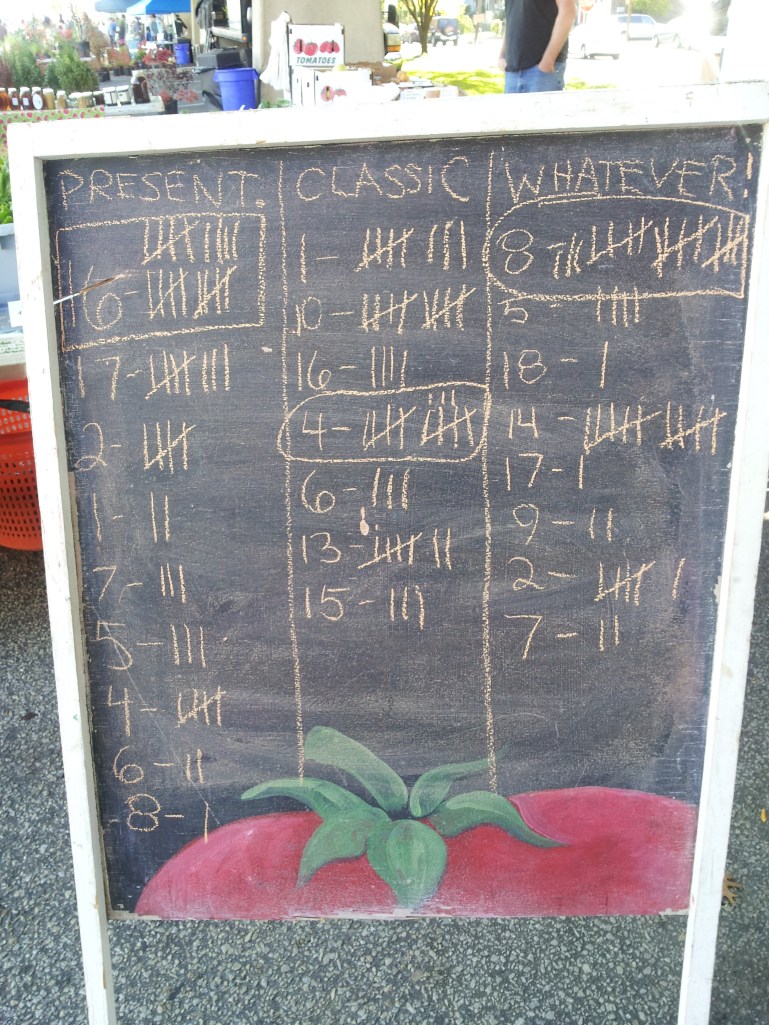 TOMATOES
PRESENT.
||||/ ||||
16 - ||||/ ||||/
17 - ||||/ |||
2 - ||||/
1 - ||
7 - |||
5 - |||
4 - ||||/
6 - ||
8 - |
CLASSIC
1 - ||||/ |||
10 - ||||/ ||||/
16 - ||||
4 - ||||/ ||||/
6 - |||
13 - ||||/ ||
15 - |||
WHATEVER!
8 - ||| ||||/ ||||/ ||||/
5 - ||||
18 - |
14 - ||||/ ||||/
17 - |
9 - ||
2 - ||||/ |
7 - ||